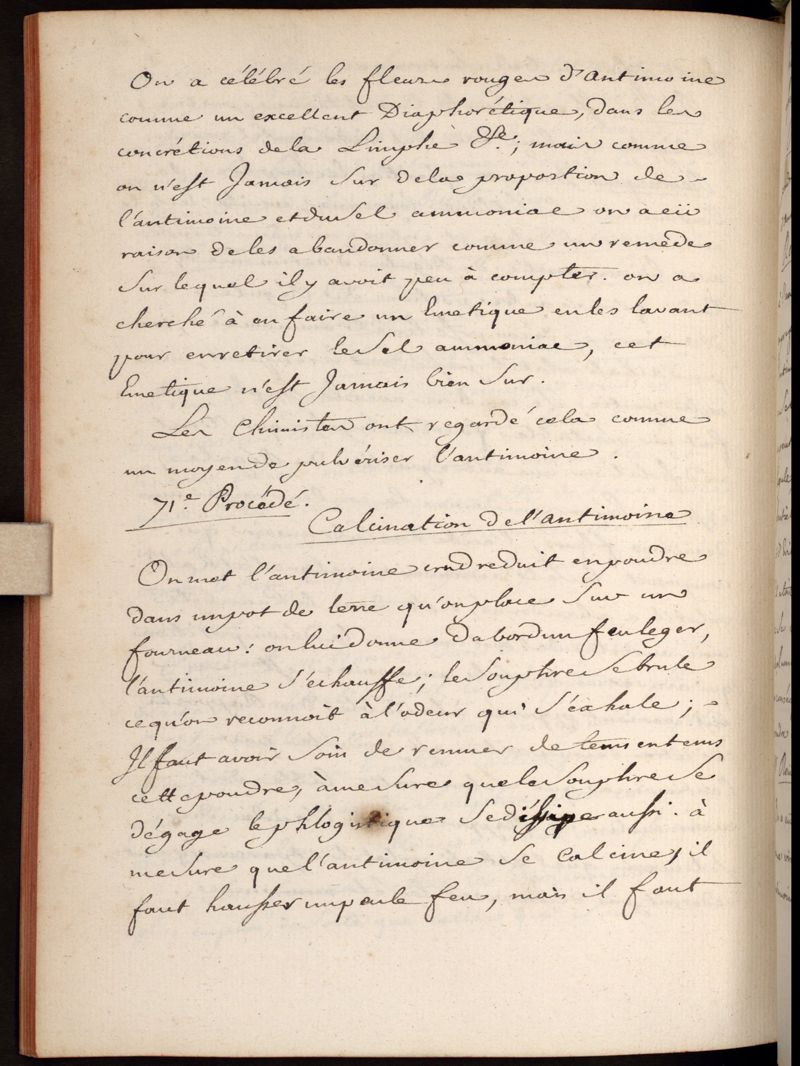 On a célébré les fleurs rouges d'antimoine
comme un excellent Diaphorétique, dans les
concrétions de la Limphe &c.; mais comme
on n'est Jamais sur de la proportion de
l'antimoine et du sel ammoniac on a eü
raison de les abandonner comme un remede
sur lequel il y avoit peu à compter. on a
cherché à en faire un Emetique en les lavant
pour en retirer le sel ammoniac, cet
Emetique n'est Jamais bien sur.
Les Chimistes ont regardé cela comme
un moyen de pulvériser l'antimoine.
71e Procédé.
Calcination de l'antimoine
On met l'antimoine crud reduit en poudre
dans un pot de terre qu'on place sur un
fourneau: on lui donne dabord un feu leger,
l'antimoine s'échauffe; le souphre se brule
ce qu'on reconnoit à l'odeur qui s'exhale;
Il faut avoir soin de remuer de tems en tems
cette poudre, à mesure que le souphre se
dégage le phlogistique se dissipe aussi. à
mesure que l'antimoine se calcine, il
faut hausser un peu le feu, mais il faut